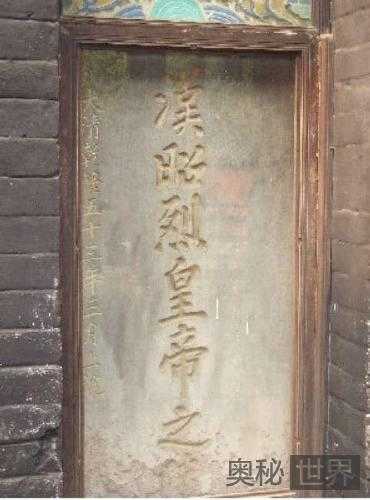 漢昭烈皇帝之
大清乾隆五十三年三月
奥秘世界